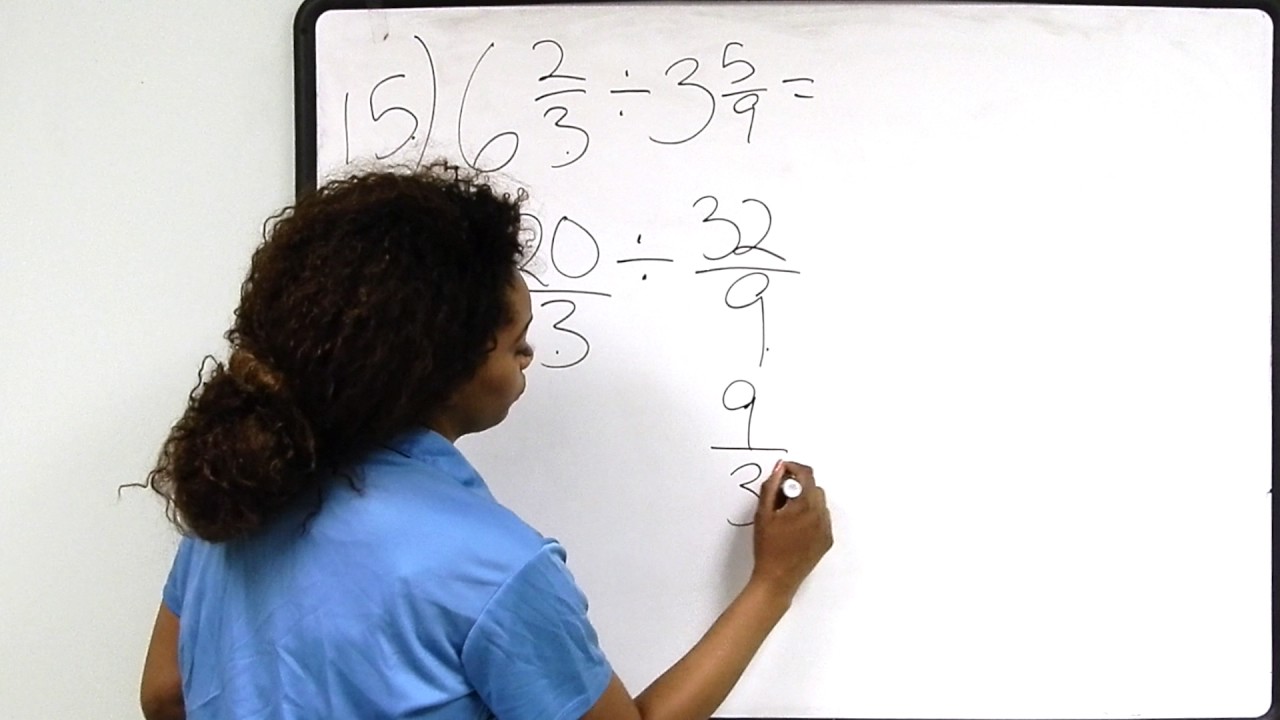 15) 6 2/3 ÷ 3 5/9 =
20/3 ÷ 32/9
9/3